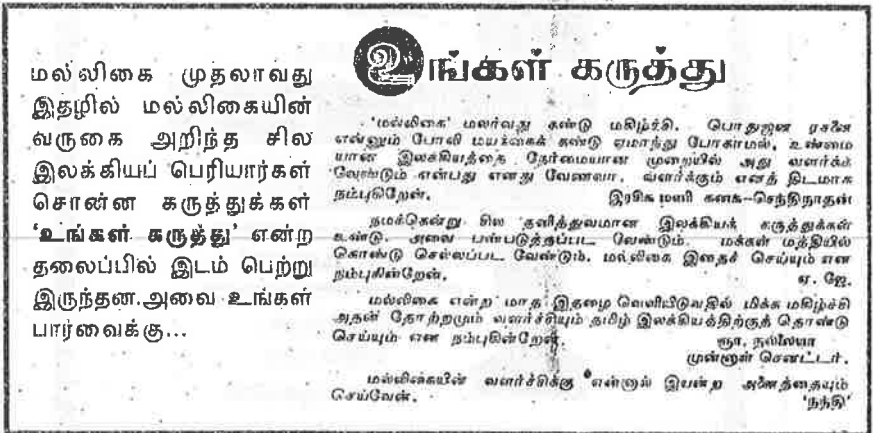 மல்லிகை முதலாவது
இதழில் மல்லிகையின்
வருகை அறிந்த சில
இலக்கியப் பெரியார்கள்
சொன்ன கருத்துக்கள்
‘உங்கள் கருத்து’ என்ற
தலைப்பில் இடம் பெற்று
இருந்தன.அவை உங்கள்
பார்வைக்கு...
உங்கள் கருத்து
‘மல்லிகை’ மலர்வது கண்டு மகிழ்ச்சி. பொதுஜன ரசனை
என்னும் போலி மயக்கைக் கண்டு ஏமாந்து போகாமல், உண்மை
யான இலக்கியத்தை நேர்மையான முறையில் அது வளர்க்க
வேண்டும் என்பது எனது வேணவா. வளர்க்கும் எனத் திடமாக
நம்புகிறேன். இரசிக மணி கனக-செந்திநாதன்
நமக்கென்று சில தனித்துவமான இலக்கியக் கருத்துக்கள்
உண்டு. அவை பண்படுத்தப்பட வேண்டும். மக்கள் மத்தியில்
கொண்டு செல்லப்பட வேண்டும். மல்லிகை இதைச் செய்யும் என
நம்புகின்றேன். ஏ. ஜே.
மல்லிகை என்ற மாத இதழை வெளியிடுவதில் மிக்க மகிழ்ச்சி
அதன் தோற்றமும் வளர்ச்சியும் தமிழ் இலக்கியத்திற்குத் தொண்டு
செய்யும் என நம்புகின்றேன். நல்லையா
முன்னாள் செனட்டர்.
மல்லிகையின் வளர்ச்சிக்கு என்னால் இயன்ற அனைத்தையும்
செய்வேன். ‘நந்தி’